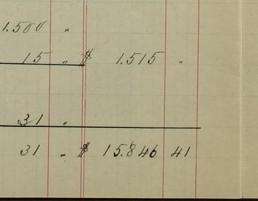 1.500 "
15 " $ 1.515 "
31 "
31 " $ 15.846 41